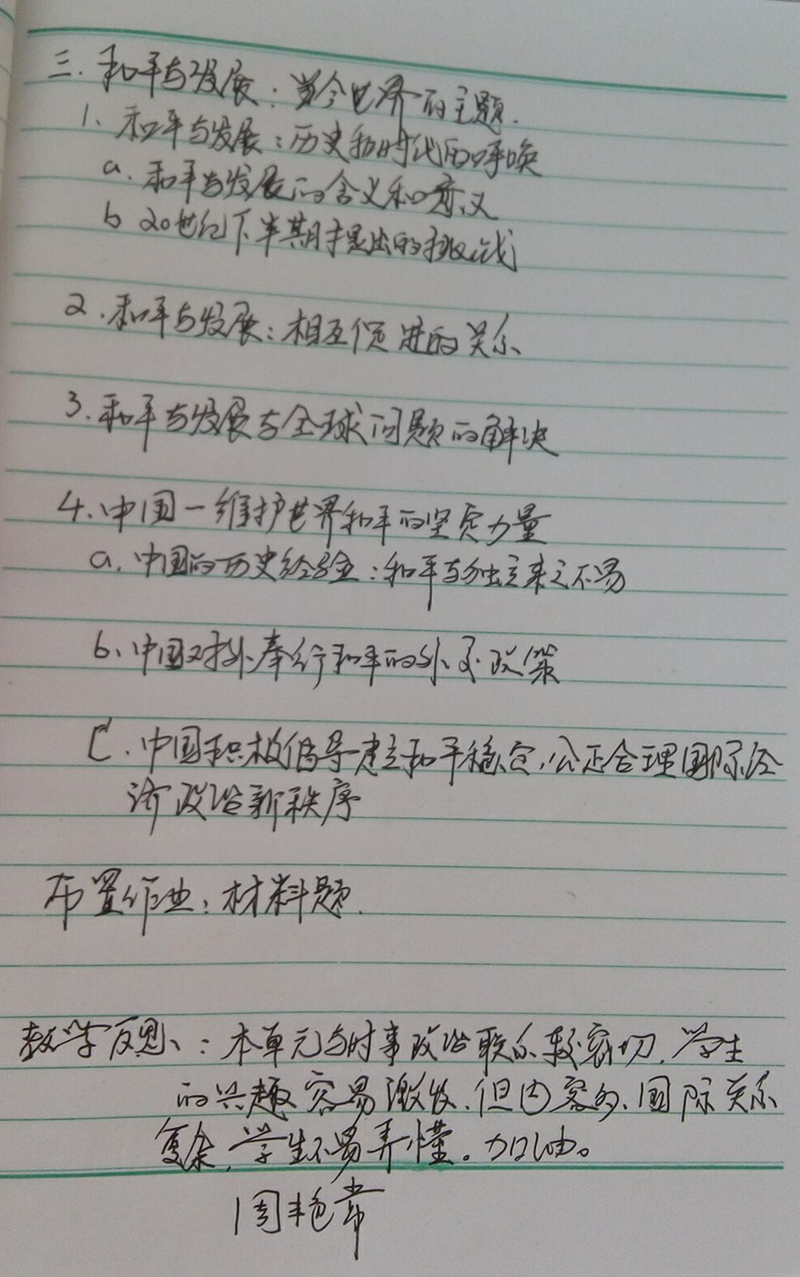 三.和平与发展:当今世界的主题.
1.和平与发展:历史和时代的呼唤
a.和平与发展的含义和意义
b 20世纪下半期提出的挑战
2.和平与发展:相互促进的关系
3.和平与发展与全球问题的解决
4.中国一维护世界和平的坚实力量
a.中国的历史经验:和平与独立来之不易
b、中国对外奉行和平的外交政策
C.中国积极倡导建立和平稳定,公正合理国际经
济政治新秩序
布置作业:材料题.
教学反思:本单元与时事政治联系较密切,学生
的兴趣容易激发,但内容多、国际关系
复杂,学生不易弄懂。加油。
周艳